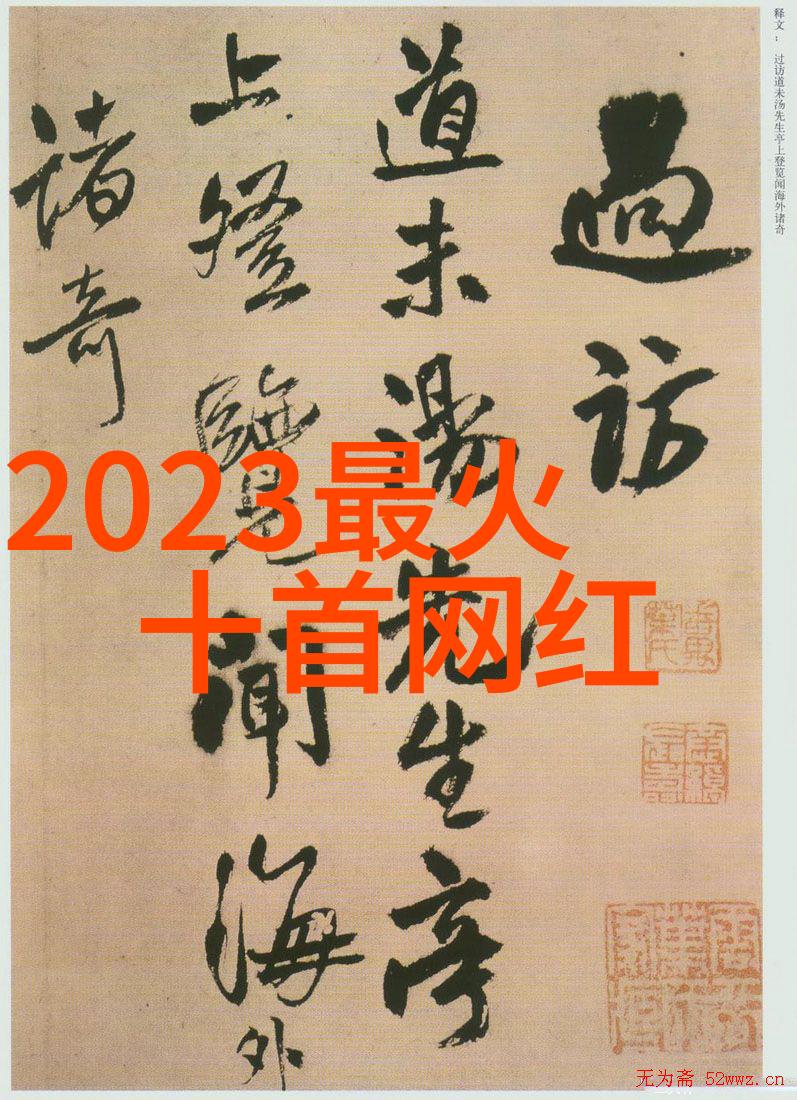 释文： 过访道未汤先生亭上登览闻海外诸奇
過訪
道未湯先生亭
上登覽聞海外
諸奇
2023最火
十首网红
无为斋 52wwz.cn